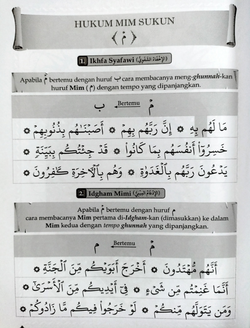 HUKUM MIM SUKUN
﴿ مْ ﴾
1. Ikhfa Syafawi (اَلْإِخْفَاءُ الشَّفَوِيُّ)
Apabila مْ bertemu dengan huruf ب cara membacanya meng-ghunnah-kan
huruf Mim (مْ) dengan tempo yang dipanjangkan.
مْ Bertemu ب
مَا لَهُمْ بِهِ ۞ إِنَّ رَبَّهُمْ بِهِمْ ۞ أَصَبْنَاهُمْ بِذُنُوبِهِمْ ۞
خَسِرُوٓا أَنْفُسَهُمْ بِمَا كَانُوا ۞ قَدْ جِئْتُكُمْ بِبَيِّنَةٍ ۞
يَدْعُونَ رَبَّهُمْ بِالْغَدَوٰةِ ۞ وَهُمْ بِالْاٰخِرَةِ كٰفِرُونَ ۞
2. Idgham Mimi
Apabila مْ bertemu dengan huruf م
cara membacanya Mim pertama di-Idgham-kan (dimasukkan) ke dalam
Mim kedua dengan tempo ghunnah yang dipanjangkan.
مْ Bertemu م
أَنَّهُمْ مُهْتَدُونَ ۞ أَخْرَجَ أَبَوَيْكُمْ مِنَ الْجَنَّةِ ۞
أَنَّمَا غَنِمْتُمْ مِنْ شَيْءٍ ۞ فِىٓ أَيْدِيكُمْ مِنَ الْأَسْرٰىٓ ۞
وَمَنْ يَتَوَلَّهُمْ مِنْكُمْ ۞ لَوْ خَرَجُوا فِيكُمْ مَا زَادُوكُمْ ۞